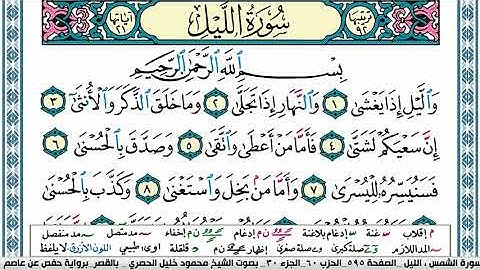 ترتيبها ٩٢ سُورَةُ اللَّيْلِ آياتها ٢١
بِسْمِ اللَّهِ الرَّحْمَٰنِ الرَّحِيمِ
وَالَّيْلِ إِذَا يَغْشَىٰ ١ وَالنَّهَارِ إِذَا تَجَلَّىٰ ٢ وَمَا خَلَقَ الذَّكَرَ وَالْأُنثَىٰ ٣
إِنَّ سَعْيَكُمْ لَشَتَّىٰ ٤ فَأَمَّا مَنْ أَعْطَىٰ وَاتَّقَىٰ ٥ وَصَدَّقَ بِالْحُسْنَىٰ ٦
فَسَنُيَسِّرُهُ لِلْيُسْرَىٰ ٧ وَأَمَّا مَن بَخِلَ وَاسْتَغْنَىٰ ٨ وَكَذَّبَ بِالْحُسْنَىٰ
م إقلاب غنة إدغام بلاغنة إدغام إخفاء مد متصل مد منفصل
المد اللازم صلة كبرى صلة صغرى إظهار قلقلة اوى طبيعي اللون الأزرق لا يلفظ
سورة الشمس ، الليل . الصفحة ٥٩٥ . الحزب ٦٠ . الجزء ٣٠ . بصوت الشيخ محمود خليل الحصري _ بالقصر_ برواية حفص عن عاصم